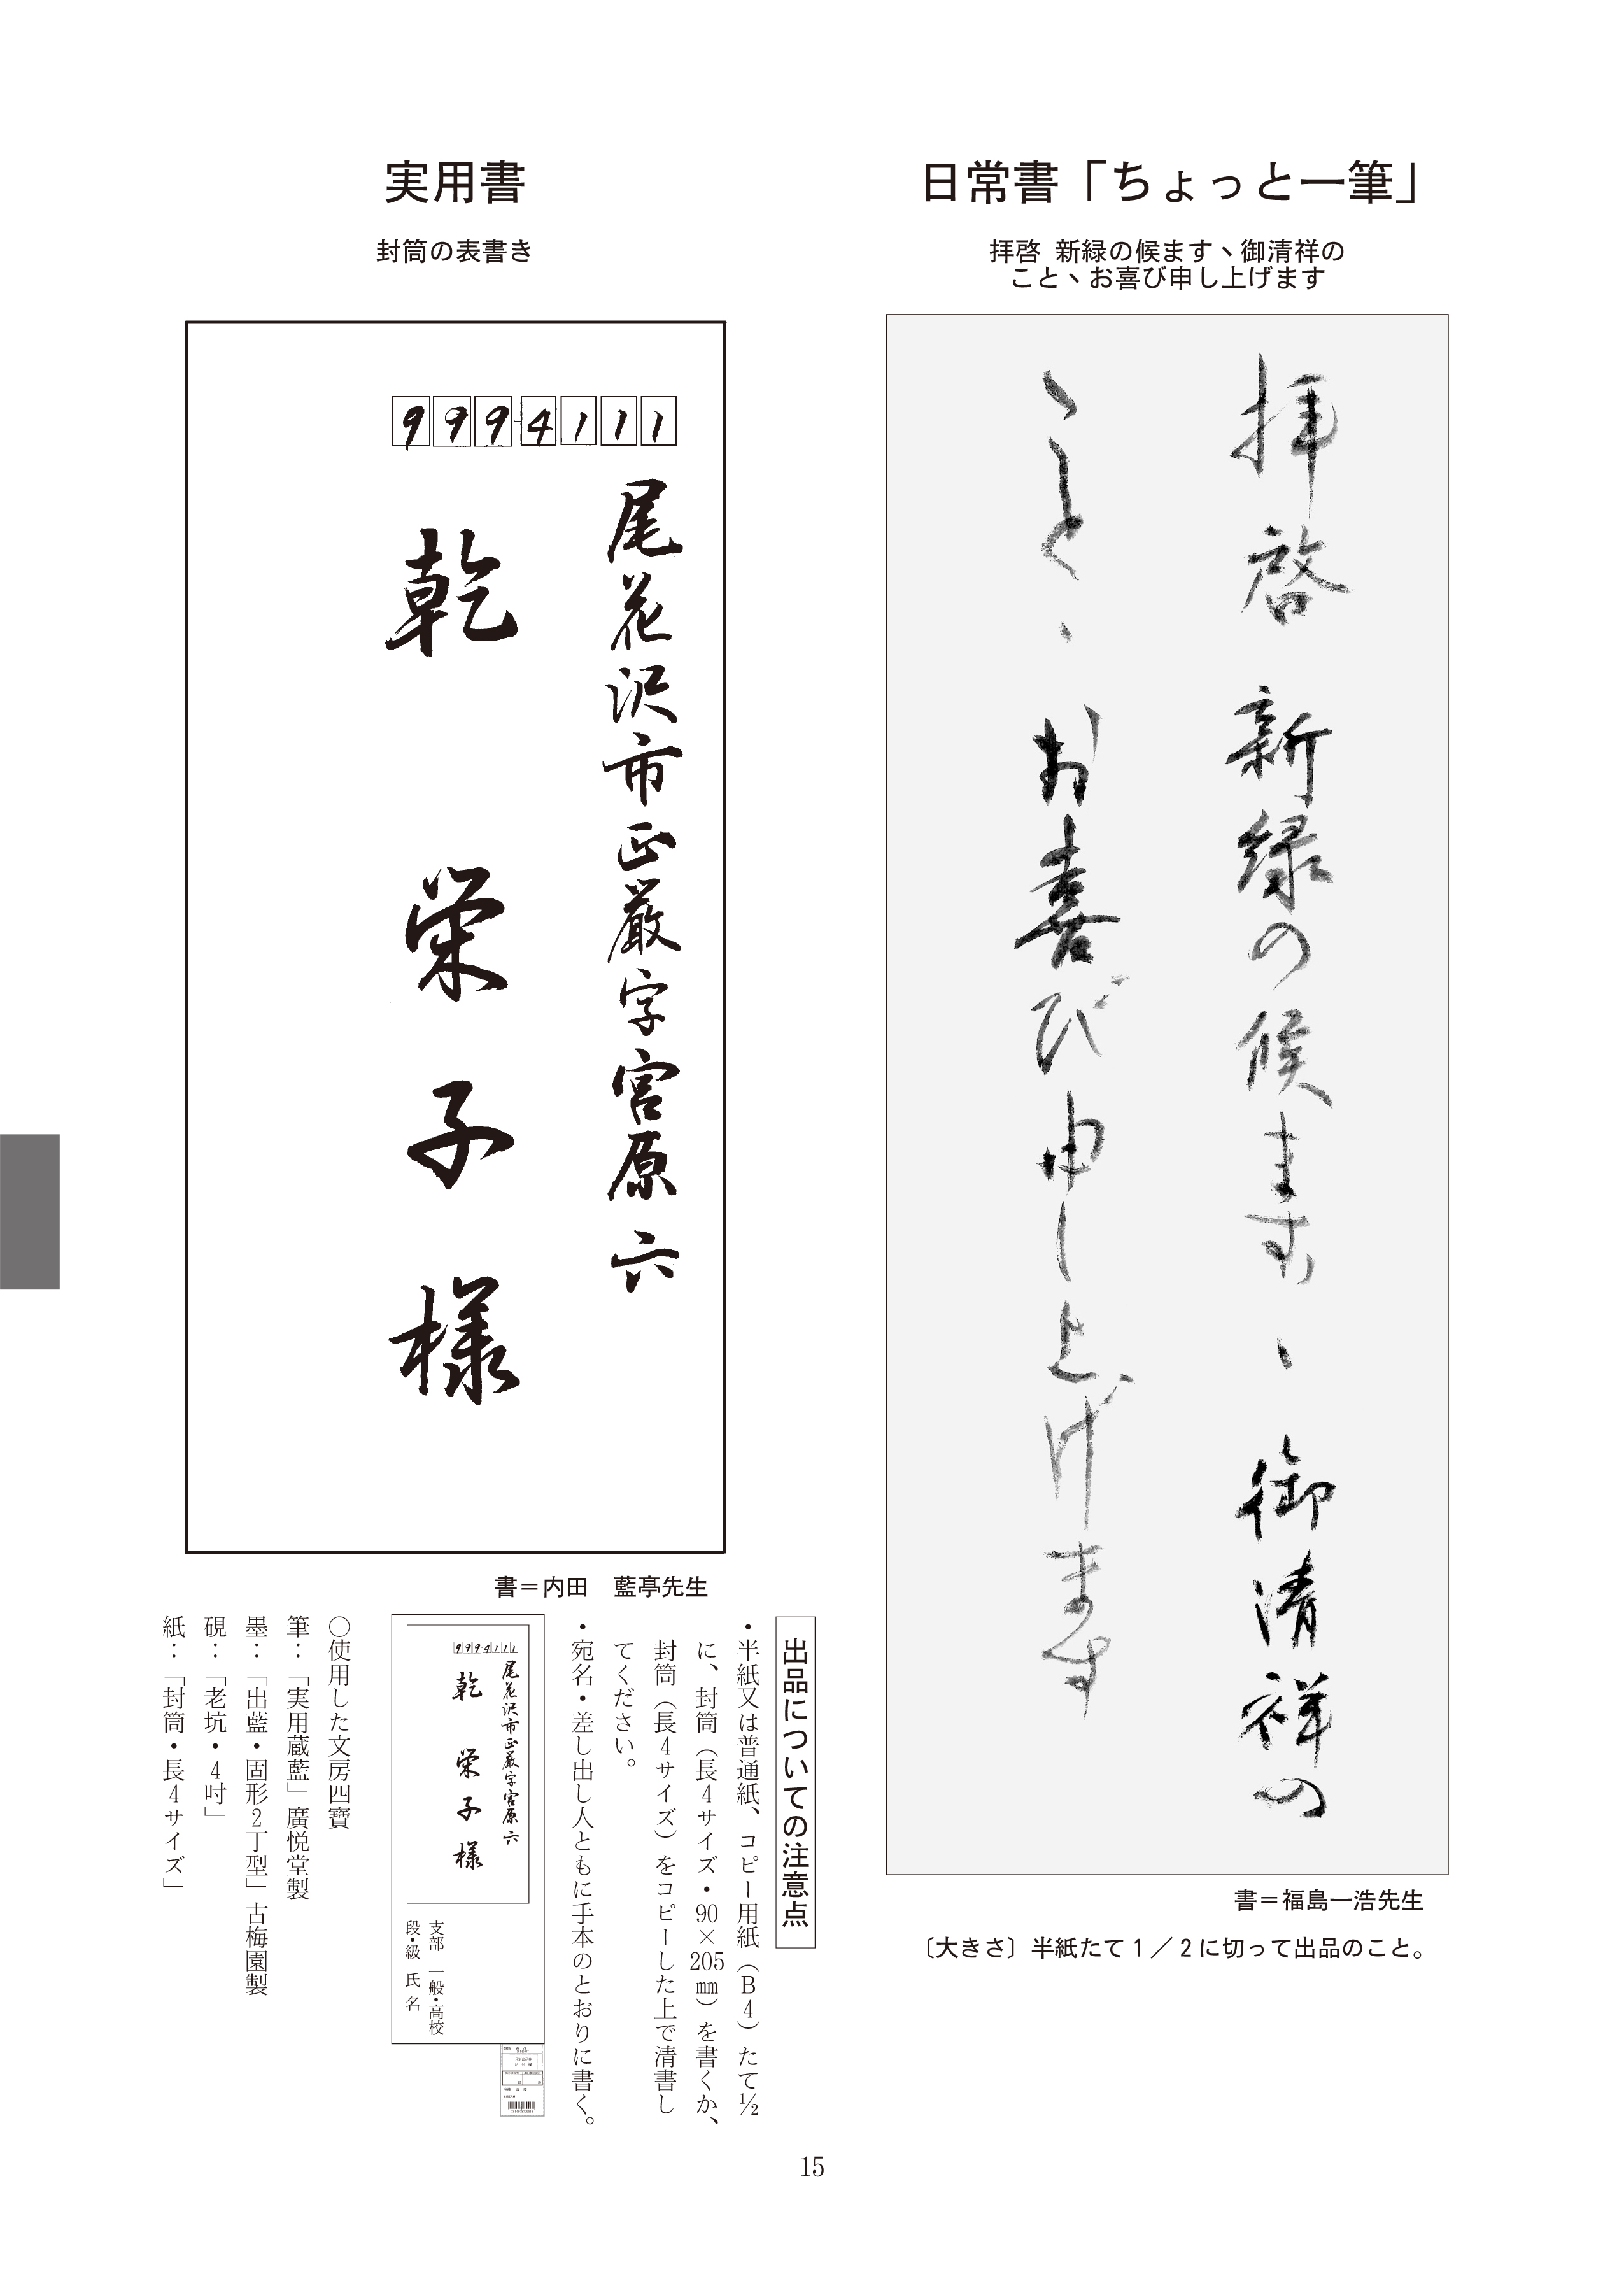 日常書「ちょっと一筆」
拝啓 新緑の候ます、御清祥の
こと、お喜び申し上げます
拝啓 新緑の候ます、御清祥の
こと、お喜び申し上げます
書＝福島一浩先生
〔大きさ〕半紙たて1／2に切って出品のこと。
実用書
封筒の表書き
9994111
尾花沢市正厳字宮原六
乾 栄子様
書＝内田 藍亭先生
出品についての注意点
・半紙又は普通紙、コピー用紙（B4）たて½
に、封筒（長4サイズ・90×205㎜）を書くか、
封筒（長4サイズ）をコピーした上で清書し
てください。
・宛名・差し出し人ともに手本のとおりに書く。
9994111
尾花沢市正厳字宮原六
乾 栄子様
支部 一般・高校
段・級 氏名
○使用した文房四寶
筆：「実用蔵藍」廣悦堂製
墨：「出藍・固形2丁型」古梅園製
硯：「老坑・4吋」
紙：「封筒・長4サイズ」
15